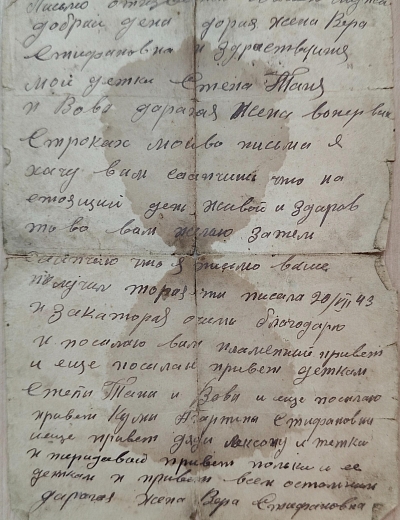 Письмо
добрый дена дорая жена Вера
Стифановна и здраствуйтя
мои детки Степа Таня
и Вова дарагая жена воперви
Строках мойво письма я
хачу вам саапчить что на
стоящий ден живой и здаров
тово вам желаю затем
саапчаю что я письмо ваше
получил торая ти писала 20/VII 43
и за каторая очень благодарю
и посилаю вам пламенний привет
и еще посилаю привет деткам
Степи Тани и Вови и еще посилаю
привет Куми Стифановни
иеще привет дяди и тетки
и передавай привет польки и ее
деткам и привет всем остольним
дарагая жена Вера Стифановна